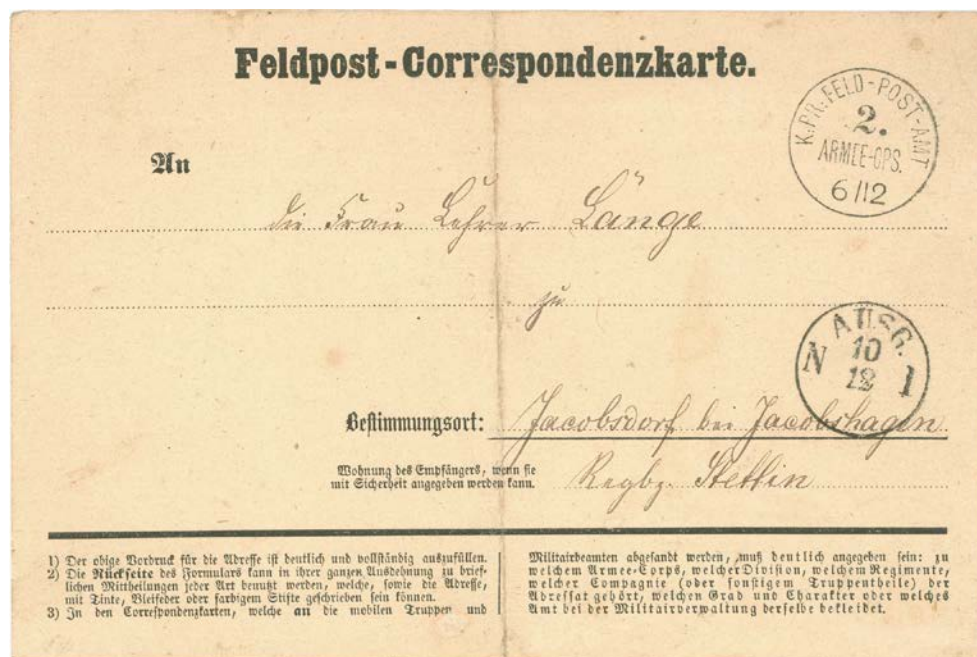 Feldpost-Correspondenzkarte.
K. PR. FELD-POST-AMT
2.
ARMEE-CPS.
6/12
An
die Frau Lehrer Länge
zu
AUSG.
10
12
N 1
Bestimmungsort: Jacobsdorf bei Jacobshagen
Wohnung des Empfängers, wenn sie
mit Sicherheit angegeben werden kann.
Regbz. Stettin
1) Der obige Vordruck für die Adresse ist deutlich und vollständig auszufüllen.
2) Die Rückseite des Formulars kann in ihrer ganzen Ausdehnung zu brief-
lichen Mittheilungen jeder Art benutzt werden, welche, sowie die Adresse,
mit Tinte, Bleifeder oder farbigem Stifte geschrieben sein können.
3) In den Correspondenzkarten, welche an die mobilen Truppen und
Militairbeamten abgesandt werden, muß deutlich angegeben sein: zu
welchem Armee-Corps, welcher Division, welchem Regimente,
welcher Compagnie (oder sonstigem Truppentheile) der
Adressat gehört, welchen Grad und Charakter oder welches
Amt bei der Militairverwaltung derselbe bekleidet.